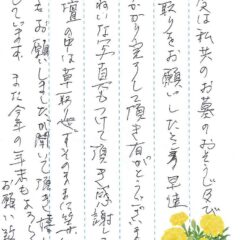 度は私共のお墓のおそうじ及び
取りをお願いしたところ早速
かかり完了して頂き有がとうございま
れいな写真もつけて頂き感謝して
壇の中は草取りせずそのままに
もお願いしましたが聞いて頂き
しています。また今年の年末もよろし
お願い致